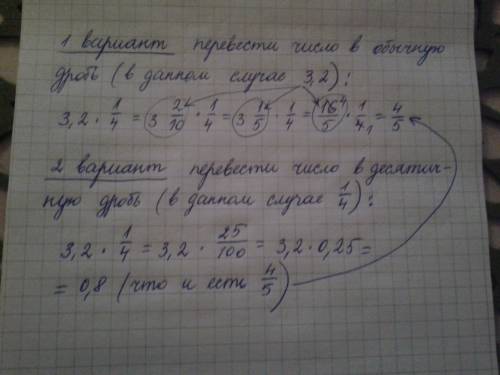 1 вариант перевести число в обычную
дробь (в данном случае 3,2):
3,2 · 1/4 = 3 2/10 · 1/4 = 3 1/5 · 1/4 = 16⁴/5 · 1/4₁ = 4/5
2 вариант перевести число в десятич-
ную дробь (в данном случае 1/4):
3,2 · 1/4 = 3,2 · 25/100 = 3,2 · 0,25 =
= 0,8 (что и есть 4/5)